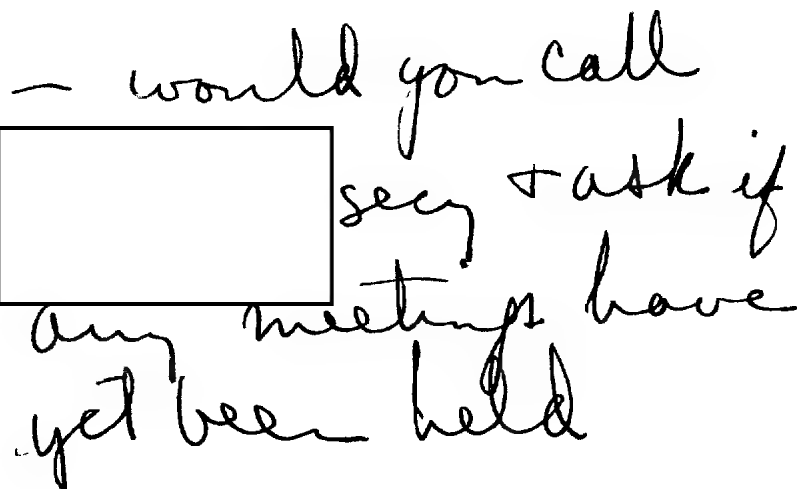 — would you call
secy + ask if
any meetings have
yet been held